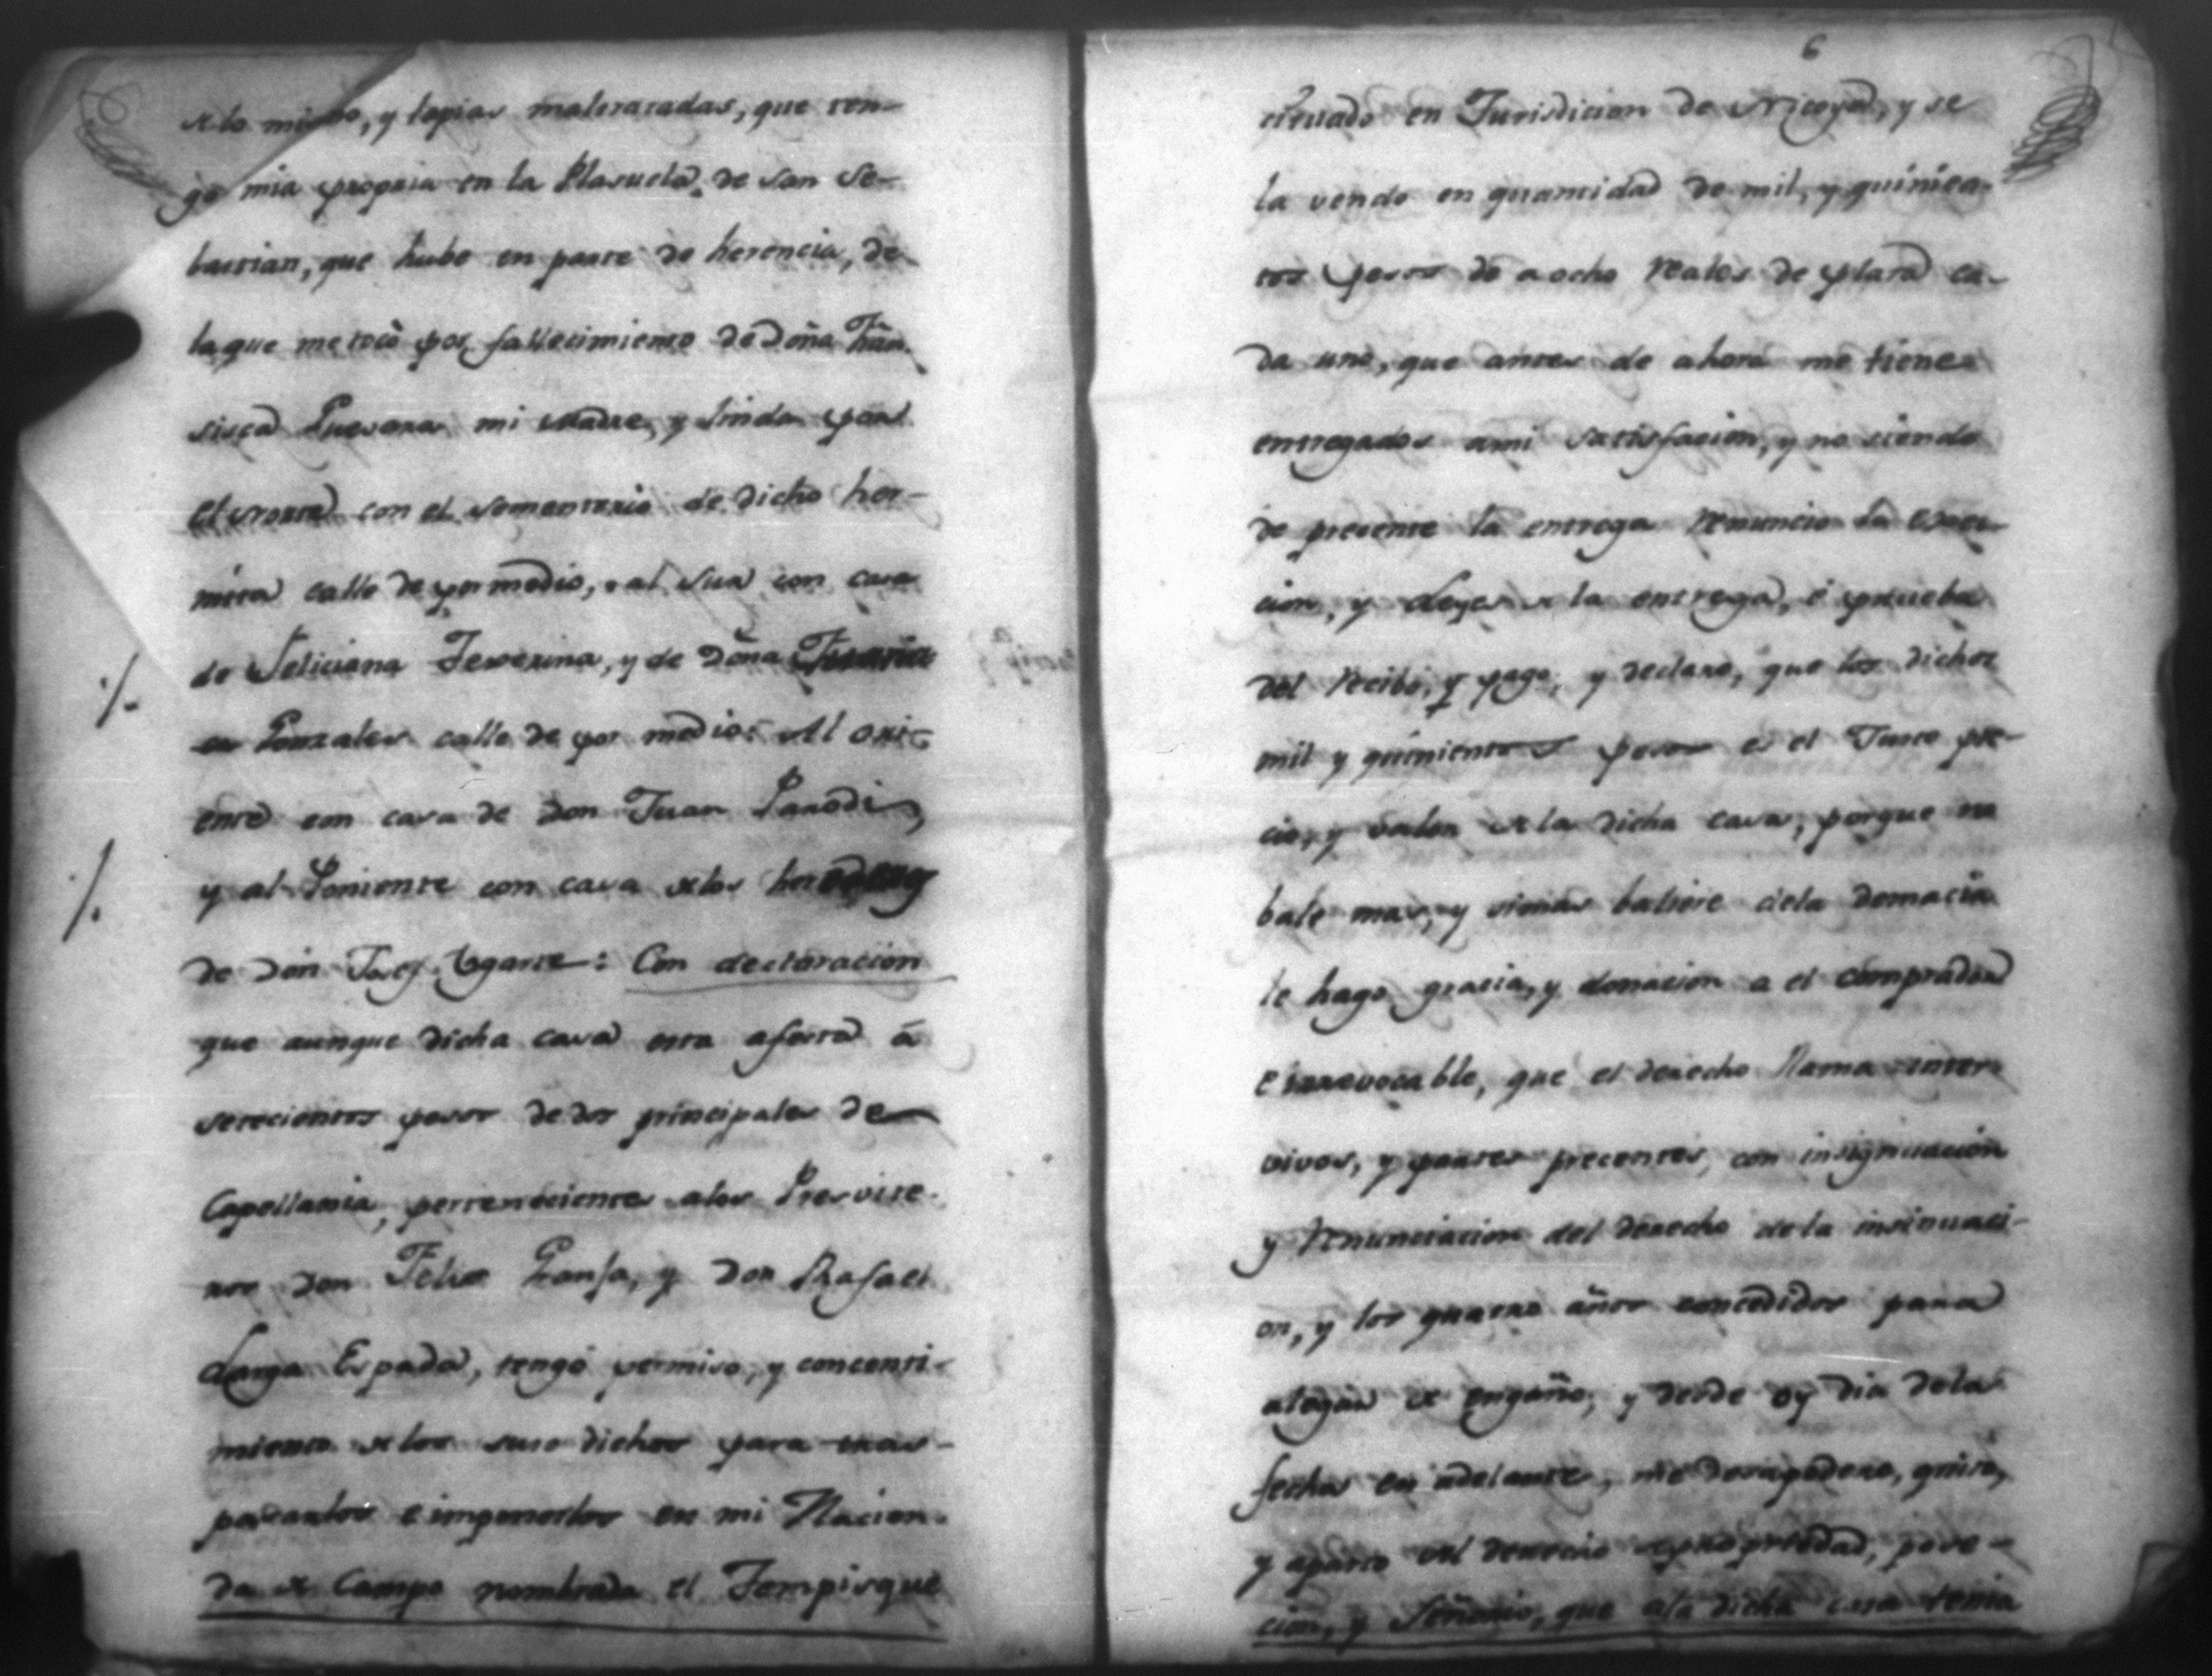 de lo mismo, y tapias maltratadas, que ten-
go mia propria en la Plasuela de San Se-
bastian, que hube en parte de herencia, de
la que me tocó por fallecimiento de Doña Fran-
sisca Guevara mi Madre, y linda por
el Norte con el sementerio de dicho her-
mita calle de por medio, al Sur con casa
de Feliciana Teverina, y de Doña
Gonzales calle de por medio: Al ori-
ente con casa de Don Juan Parodi,
y al Poniente con casa de los
de Don Josef Ugarte: Con declaracion
que aunque dicha casa esta afecta á
setecientos pesos de dos principales de
Capellania, pertenecientes a los Presvite-
ros Don Felix Gansa, y Don Rafael
Larga Espada, tengo permiso, y concenti-
miento de los suso dichos para tras-
pasarlos e imponerlos en mi Hacien-
da de Campo nombrada el Tempisque
6
cituado en Jurisdicion de Nicoya, y se
la vendo en quantidad de mil, y quinien-
tos pesos de a ocho reales de plata ca-
da uno, que antes de ahora me tiene
entregados a mi satisfacion, y no siendo
de precente la entrega renuncio la esep-
cion, y Leyes de la entrega, é prueba
del recibo, y pago, y declaro, que los dichos
mil y quinientos pesos es el Justo pre-
cio, y valor de la dicha casa, porque no
bale mas, y si mas baliere de la demacia
le hago gracia, y donacion a el comprador
e irrevocable, que el derecho llama inter
vivos, y partes precentes, con insignuacion
y renunciacion del derecho de la insinuaci-
on, y los quatro años concedidos para
alegar de engaño, y desde oy dia de la
fecha en adelante, me desapodero, quito,
y aparto del derecho de propriedad, pose-
cion, y Señorio, que a la dicha casa tenia